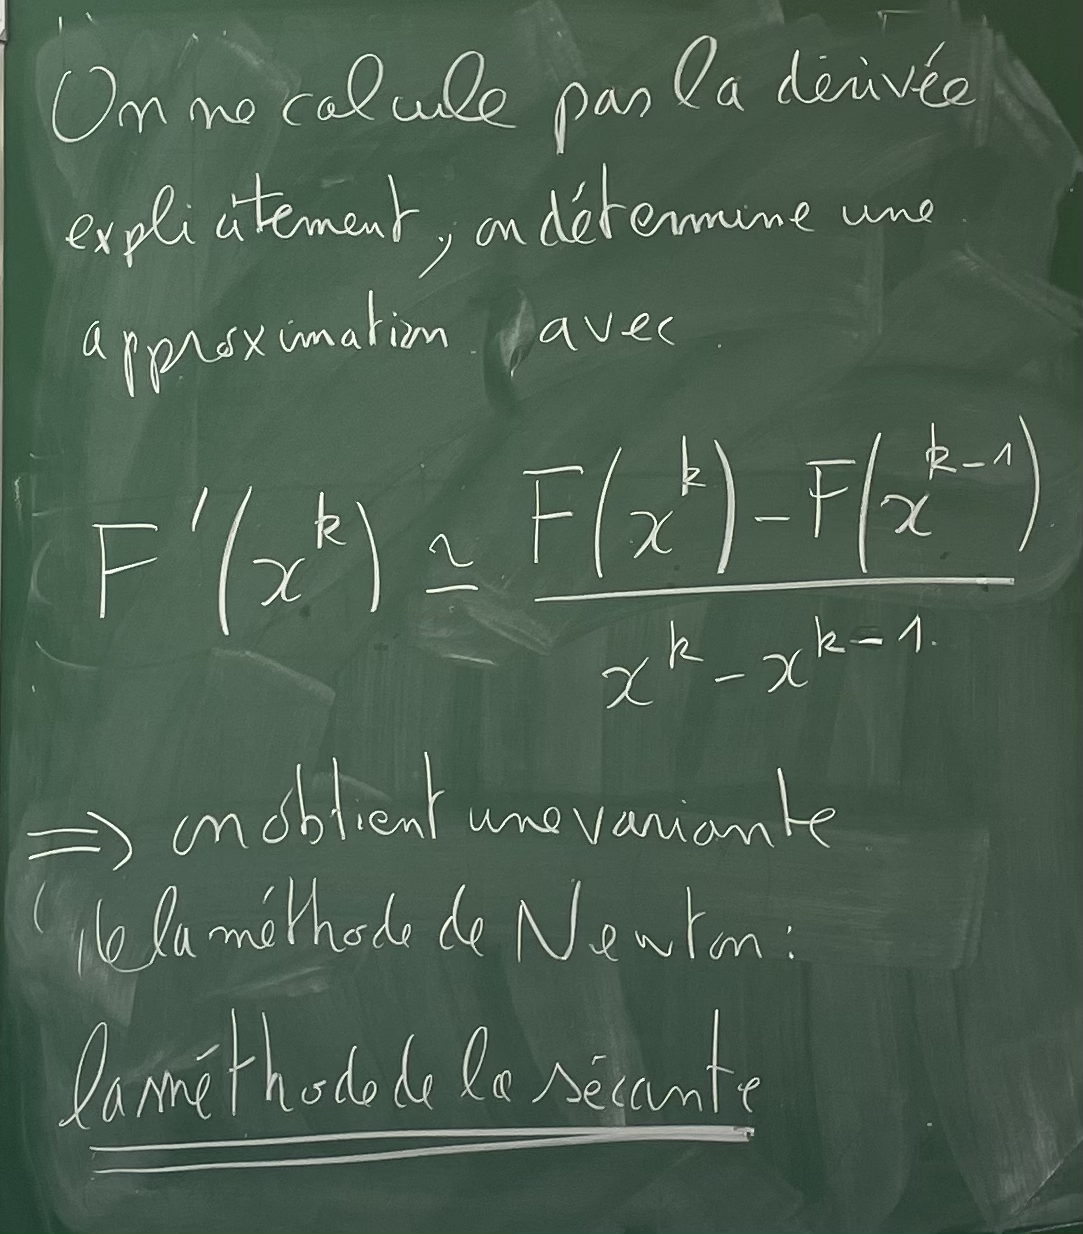 On ne calcule pas la dérivée
explicitement, on détermine une
approximation avec
F'(x^k) ≃ (F(x^k) - F(x^{k-1})) / (x^k - x^{k-1})
⇒ on obtient une variante
de la méthode de Newton :
la méthode de la sécante